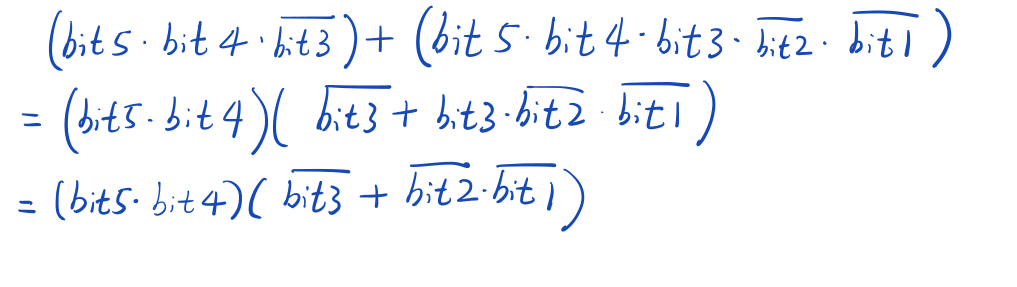 (bit5 · bit4 · \overline{bit3}) + (bit5 · bit4 · bit3 · \overline{bit2} · \overline{bit1})
= (bit5 · bit4)(\overline{bit3} + bit3 · \overline{bit2} · \overline{bit1})
= (bit5 · bit4)(\overline{bit3} + \overline{bit2} · \overline{bit1})